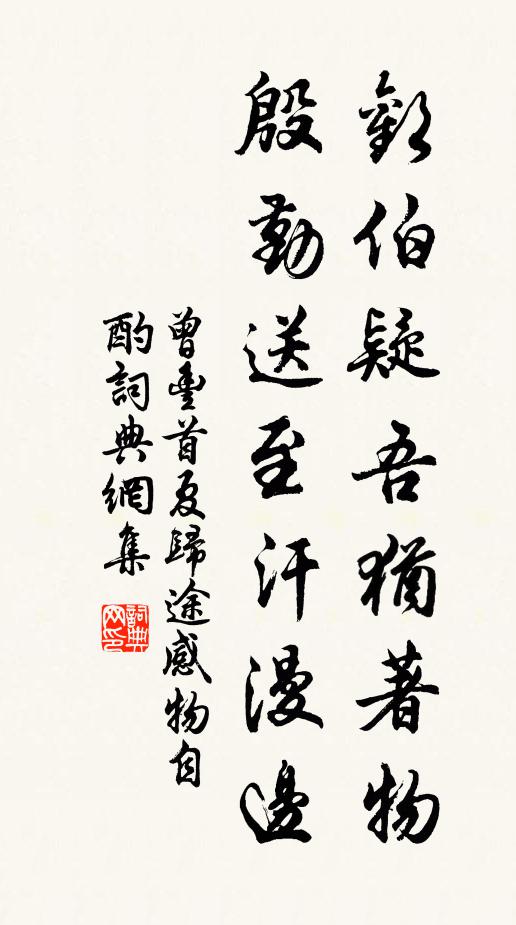 歡伯疑吾猶著物
殷勤送至汗漫邊
曾豐首夏歸途感物自
酌詞典網集
詞典
网印